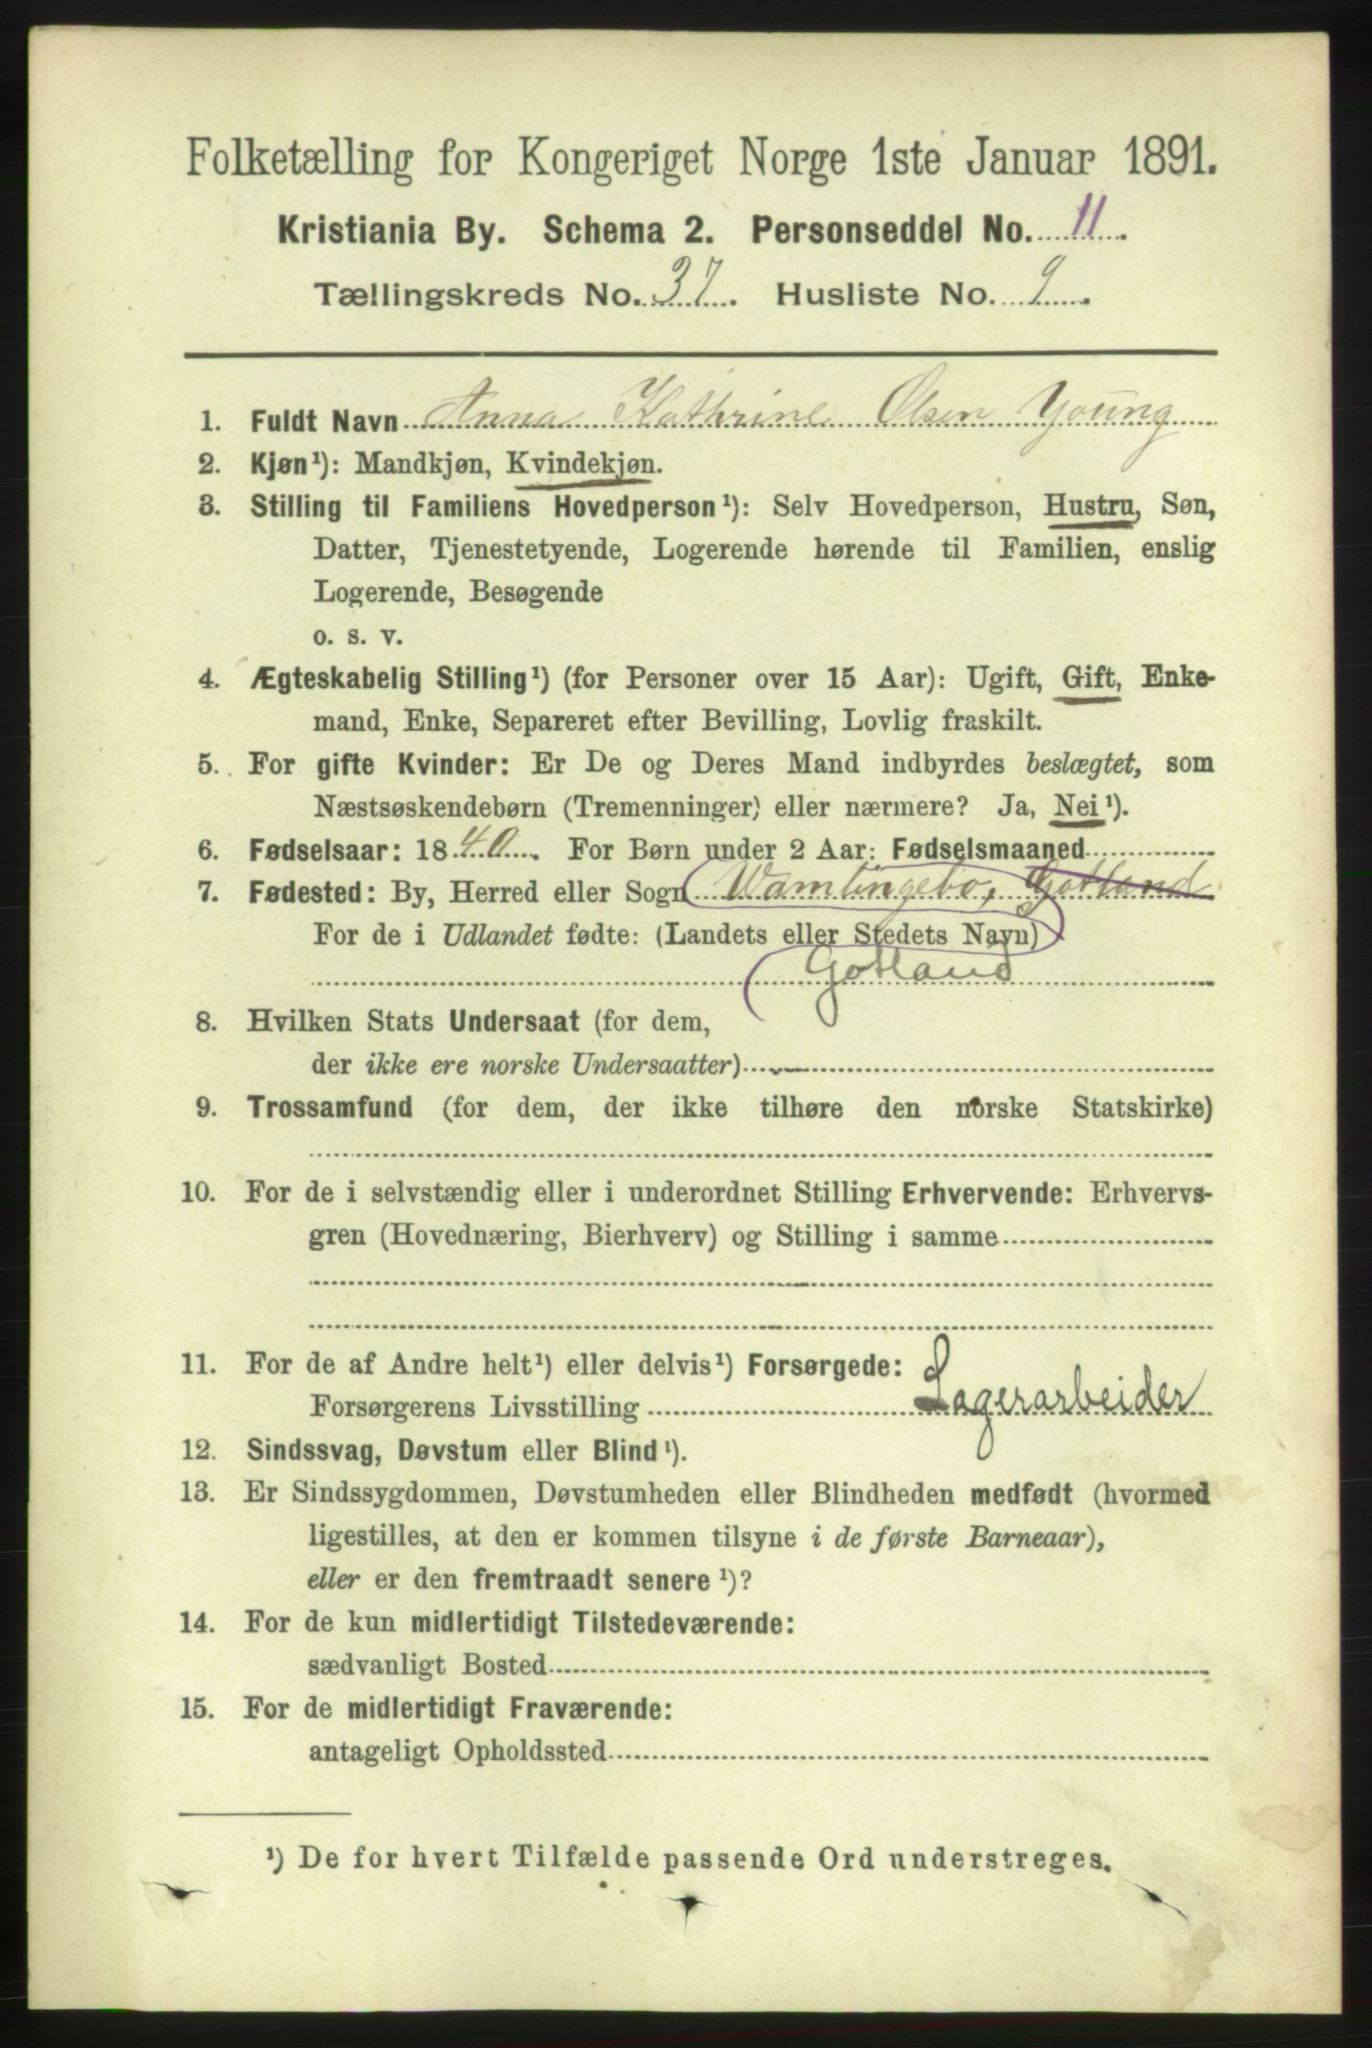 Folketælling for Kongeriget Norge 1ste Januar 1891.
Kristiania By. Schema 2. Personseddel No. 11.
Tællingskreds No. 37. Husliste No. 9.
1. Fuldt Navn Anna Kathrine Olsen Young
2. Kjøn¹): Mandkjøn, Kvindekjøn.
3. Stilling til Familiens Hovedperson¹): Selv Hovedperson, Hustru, Søn,
Datter, Tjenestetyende, Logerende hørende til Familien, enslig
Logerende, Besøgende
o. s. v.
4. Ægteskabelig Stilling¹) (for Personer over 15 Aar): Ugift, Gift, Enke-
mand, Enke, Separeret efter Bevilling, Lovlig fraskilt.
5. For gifte Kvinder: Er De og Deres Mand indbyrdes beslægtet, som
Næstsøskendebørn (Tremenninger) eller nærmere? Ja, Nei¹).
6. Fødselsaar: 1840. For Børn under 2 Aar: Fødselsmaaned
7. Fødested: By, Herred eller Sogn Wamlingebo, Gotland
For de i Udlandet fødte: (Landets eller Stedets Navn)
Gotland
8. Hvilken Stats Undersaat (for dem,
der ikke ere norske Undersaatter)
9. Trossamfund (for dem, der ikke tilhøre den norske Statskirke)
10. For de i selvstændig eller i underordnet Stilling Erhvervende: Erhvervs-
gren (Hovednæring, Bierhverv) og Stilling i samme
11. For de af Andre helt¹) eller delvis¹) Forsørgede:
Forsørgerens Livsstilling Lagerarbeider
12. Sindssvag, Døvstum eller Blind¹).
13. Er Sindssygdommen, Døvstumheden eller Blindheden medfødt (hvormed
ligestilles, at den er kommen tilsyne i de første Barneaar),
eller er den fremtraadt senere¹)?
14. For de kun midlertidigt Tilstedeværende:
sædvanligt Bosted
15. For de midlertidigt Fraværende:
antageligt Opholdssted
¹) De for hvert Tilfælde passende Ord understreges.